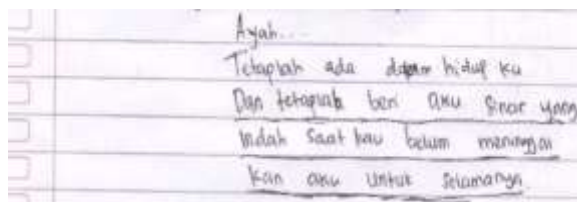 Ayah....
Tetaplah ada dalam hidup ku
Dan tetaplah beri aku Sinar yang
indah Saat kau belum meninggal
kan aku untuk Selamanya.